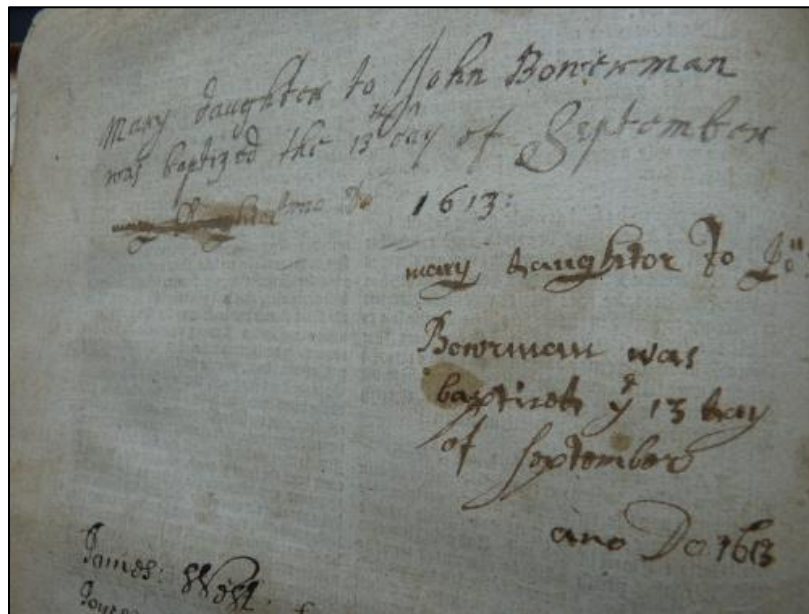 Mary daughter to John Bowerman
was baptized the 13th day of September
Ano Do 1613:
mary daughter To Jon
Bowrman was
baptized ye 13 day
of september
ano Do 1613
James: West: